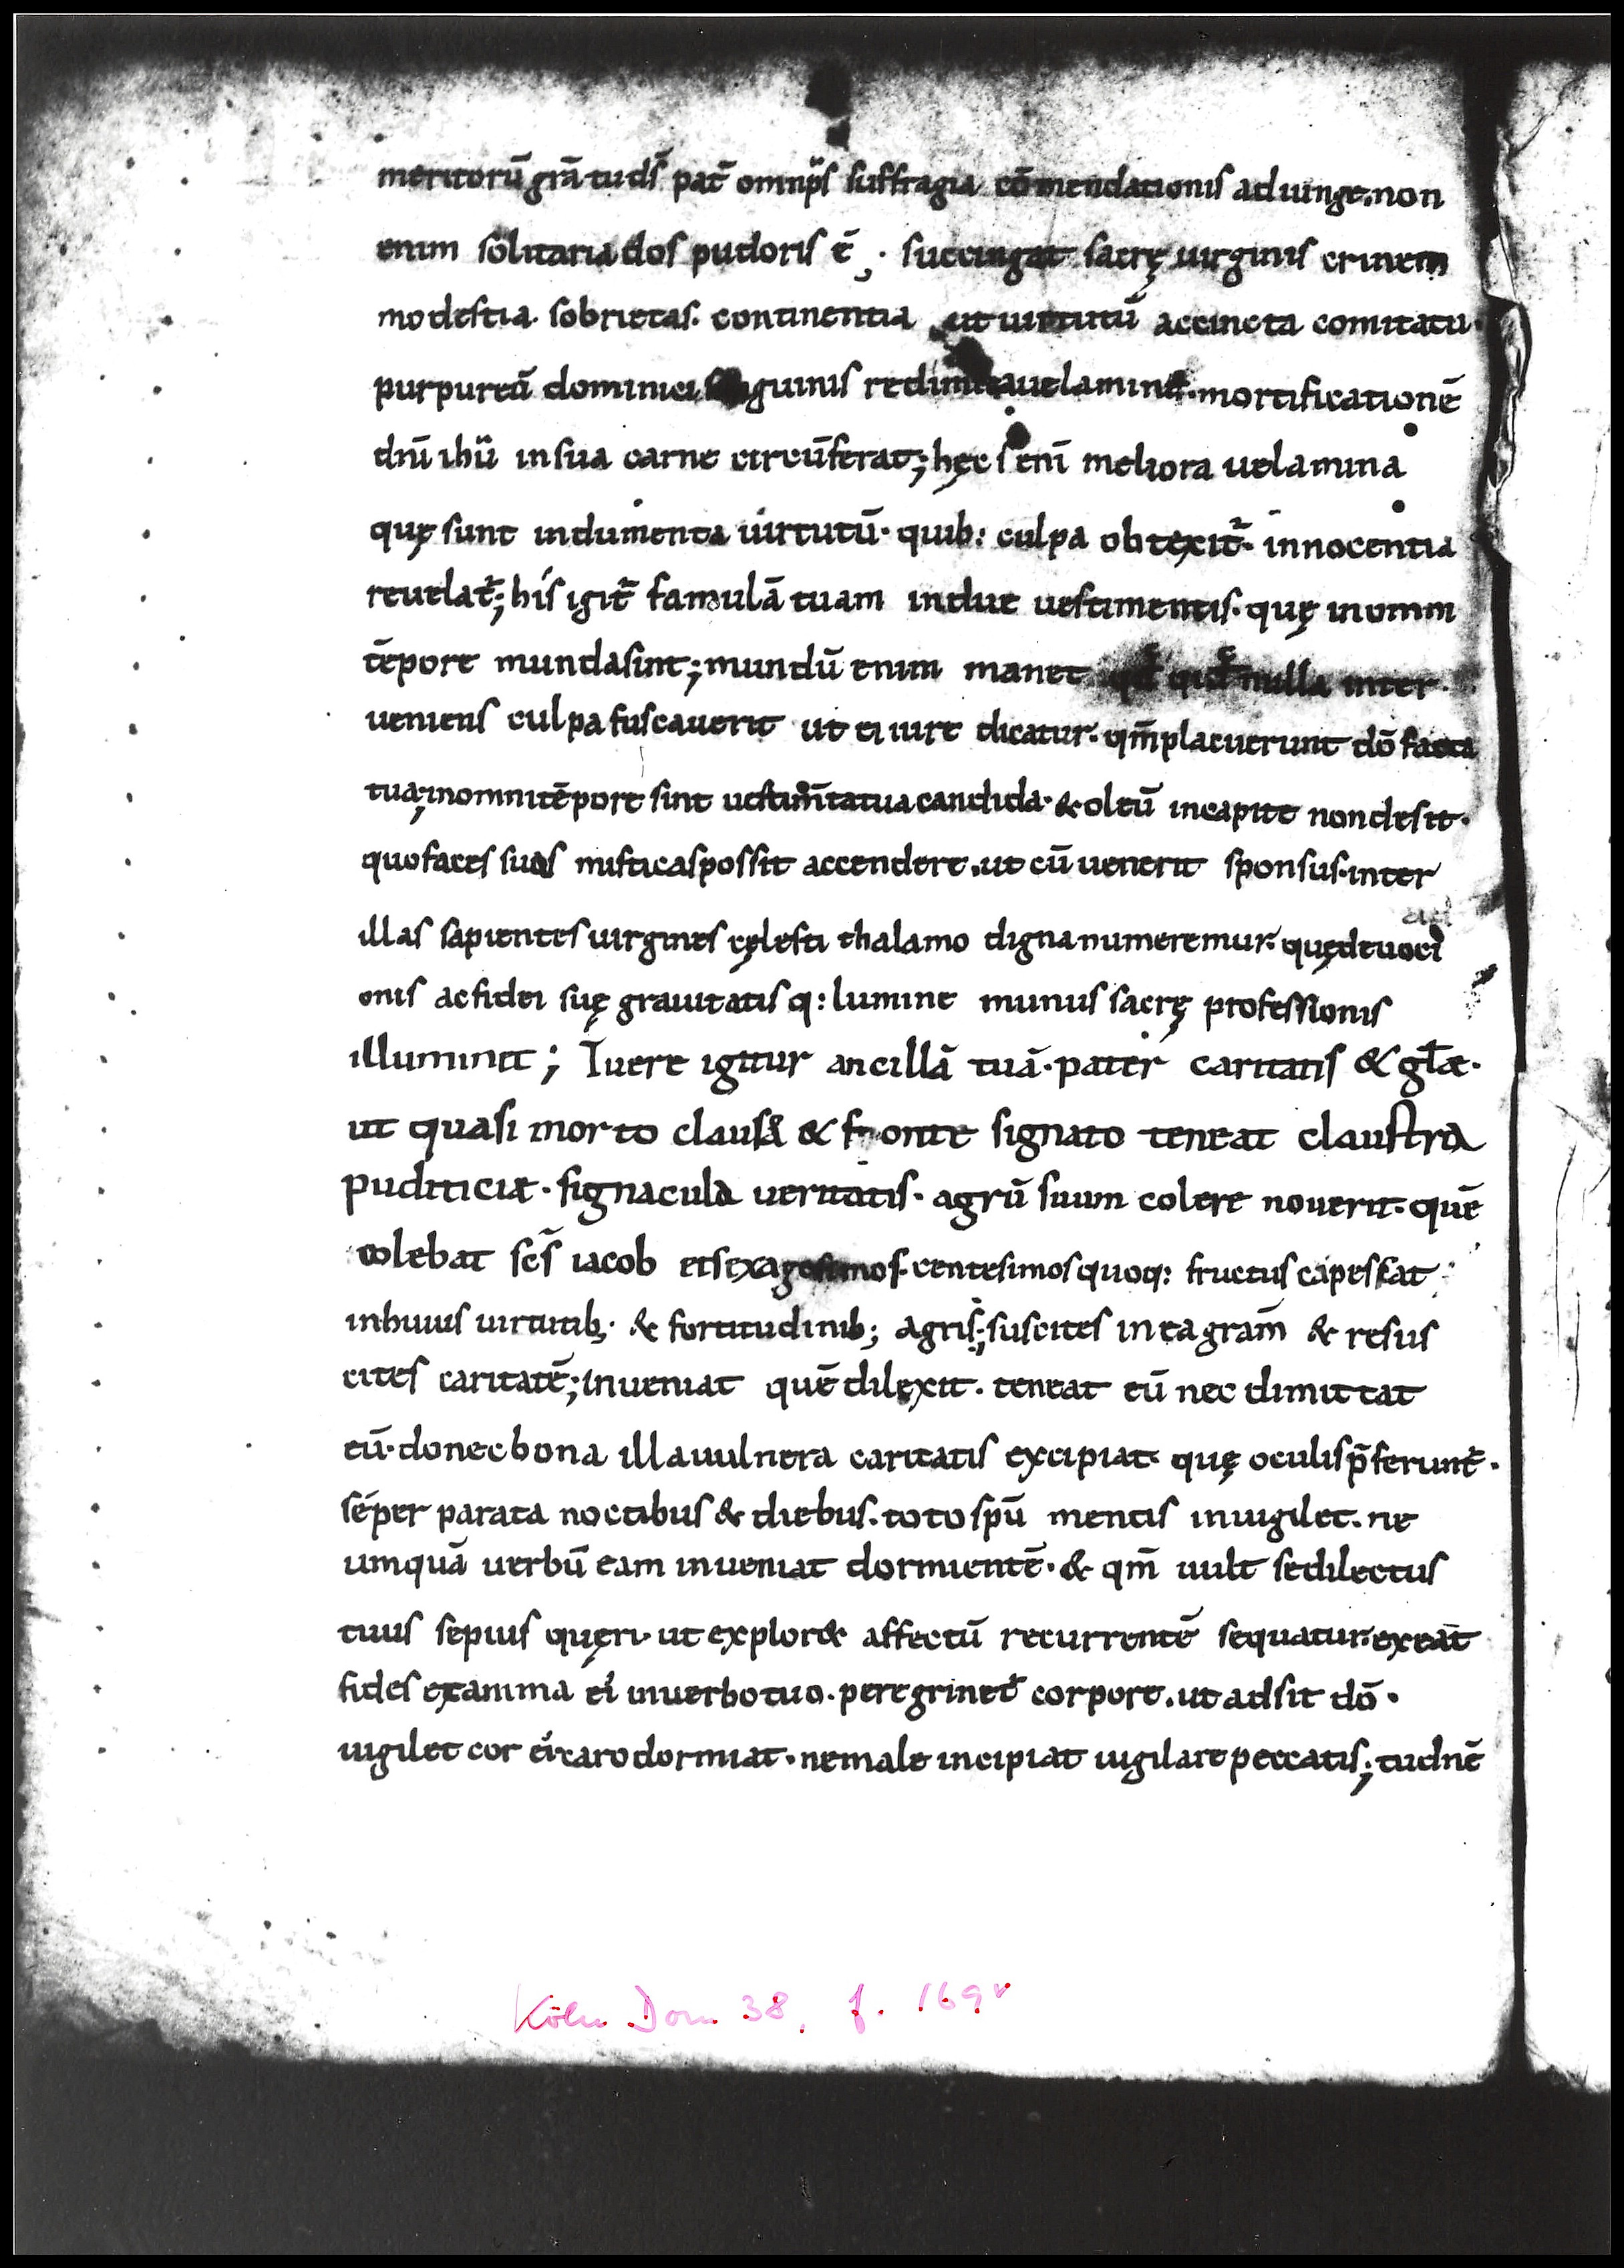 meritorū grā tu dš pat̄ omnip̄s suffragia cōmendationis adiunge. non
enim solitaria dos pudoris ē. succingat sacrę uirginis crinem
modestia. sobrietas. continentia ut uirtutū accincta comitatu.
purpureū dominici guinis uelamine. mortificationē
dn̄i ih̄u in sua carne circūferat; hęc s̄ enī meliora uelamina
quę sunt indumenta uirtutū. quib: culpa obtexit᷑. innocentia
reuelat᷑; his igit᷑ famulā tuam indue uestimentis. quę in omni
tēpore munda sint; mundū enim manet qd̄ nulla inter
ueniens culpa fuscauerit ut ei iure dicatur. qm̄ placuerunt dō facta
tua; in omni tēpore sint uestim̄ta tua candida. & oleū in capite non desit.
quo faces suas misticas possit accendere. ut cū uenerit sponsus. inter
illas sapientes uirgines cęlesti thalamo digna numeremur. quę deuoci
onis ac fidei suę grauitatis q: lumine munus sacrę professionis
illuminet; Tuere igitur ancillā tuā. pater caritatis & gl̄æ.
ut quasi in orto clauso & fonte signato teneat claustra
pudiciciæ. signacula ueritatis. agrū suum colere nouerit. quē
colebat sc̄s iacob et sexagesimos. centesimos quoq: fructus capessat
in huius uirtutib; & fortitudinib; agris; suscites in ea gram̄ & resus
cites caritatē; inueniat quē dilexit. teneat eū nec dimittat
eū. donec bona illa uulnera caritatis excipiat. quę oculis p̄ferunt᷑.
sēper parata noctibus & diebus. toto sp̄u mentis inuigilet. ne
umquā uerbū eam inueniat dormientē. & qm̄ uult se dilectus
tuus sepius quęri. ut explor& affectū recurrentē sequatur. exeat
fides et anima ei in uerbo tuo. peregrinet᷑ corpore. ut adsit dō.
uigilet cor ei. caro dormiat. ne male incipiat uigilare peccatis; tu dnē
Köln Dom 38, f. 169v